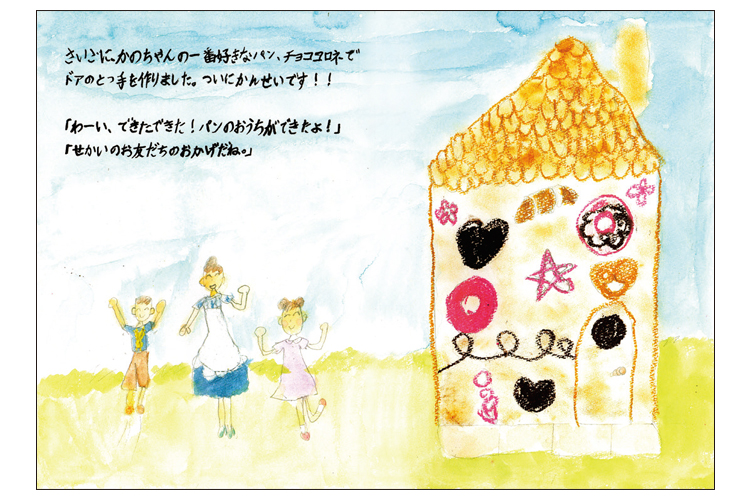 さいごに、かのちゃんの一番好きなパン、チョココロネで
ドアのとっ手を作りました。ついにかんせいです！！
「わーい、できたできた！パンのおうちができたよ！」
「せかいのお友だちのおかげだね。」